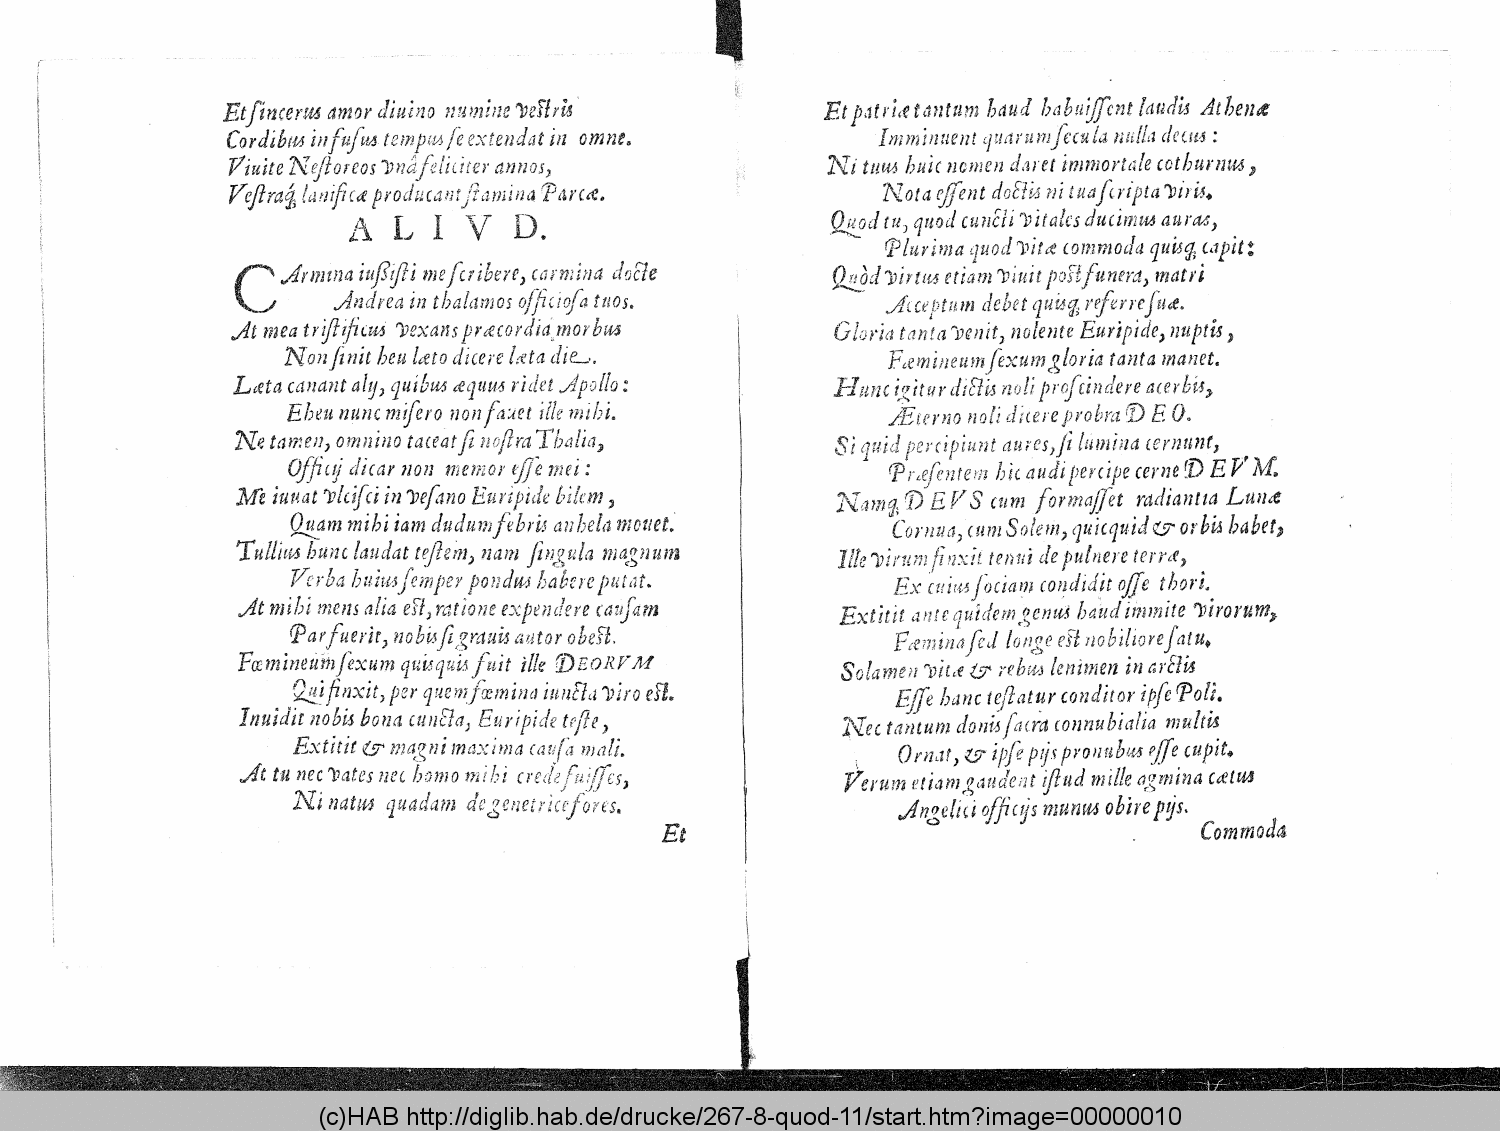 Et sincerus amor diuino numine vestris
Cordibus infusus tempus se extendat in omne.
Viuite Nestoreos vnâ feliciter annos,
Vestraq́; lanificæ producant stamina Parcæ.
ALIVD.
CArmina iußisti me scribere, carmina docte
Andrea in thalamos officiosa tuos.
At mea tristificus vexans præcordia morbus
Non sinit heu læto dicere læta die.
Læta canant alij, quibus æquus ridet Apollo:
Eheu nunc misero non fauet ille mihi.
Ne tamen, omnino taceat si nostra Thalia,
Officij dicar non memor esse mei:
Me iuuat vlcisci in vesano Euripide bilem,
Quam mihi iam dudum febris anhela mouet.
Tullius hunc laudat testem, nam singula magnum
Verba huius semper pondus habere putat.
At mihi mens alia est, ratione expendere causam
Par fuerit, nobis si grauis autor obest.
Fœmineum sexum quisquis fuit ille DEORVM
Qui finxit, per quem fœmina iuncta viro est.
Inuidit nobis bona cuncta, Euripide teste,
Extitit & magni maxima causa mali.
At tu nec vates nec homo mihi crede fuisses,
Ni natus quadam de genetrice fores.
Et
Et patriæ tantum haud habuissent laudis Athenæ
Imminuent quarum secula nulla decus:
Ni tuus huic nomen daret immortale cothurnus,
Nota essent doctis ni tua scripta viris.
Quod tu, quod cuncti vitales ducimus auras,
Plurima quod vitæ commoda quisq; capit:
Quòd virtus etiam viuit post funera, matri
Acceptum debet quisq; referre suæ.
Gloria tanta venit, nolente Euripide, nuptis,
Fæmineum sexum gloria tanta manet.
Hunc igitur dictis noli proscindere acerbis,
Æterno noli dicere probra DEO.
Si quid percipiunt aures, si lumina cernunt,
Præsentem hic audi percipe cerne DEVM.
Namq; DEVS cum formasset radiantia Lunæ
Cornua, cum Solem, quicquid & orbis habet,
Ille virum finxit tenui de puluere terræ,
Ex cuius sociam condidit osse thori.
Extitit ante quidem genus haud immite virorum,
Fæmina sed longe est nobiliore satu.
Solamen vitæ & rebus lenimen in arctis
Esse hanc testatur conditor ipse Poli.
Nec tantum donis sacra connubialia multis
Ornat, & ipse pijs pronubus esse cupit.
Verum etiam gaudent istud mille agmina cætus
Angelici officijs munus obire pijs.
Commoda
(c)HAB http://diglib.hab.de/drucke/267-8-quod-11/start.htm?image=00000010